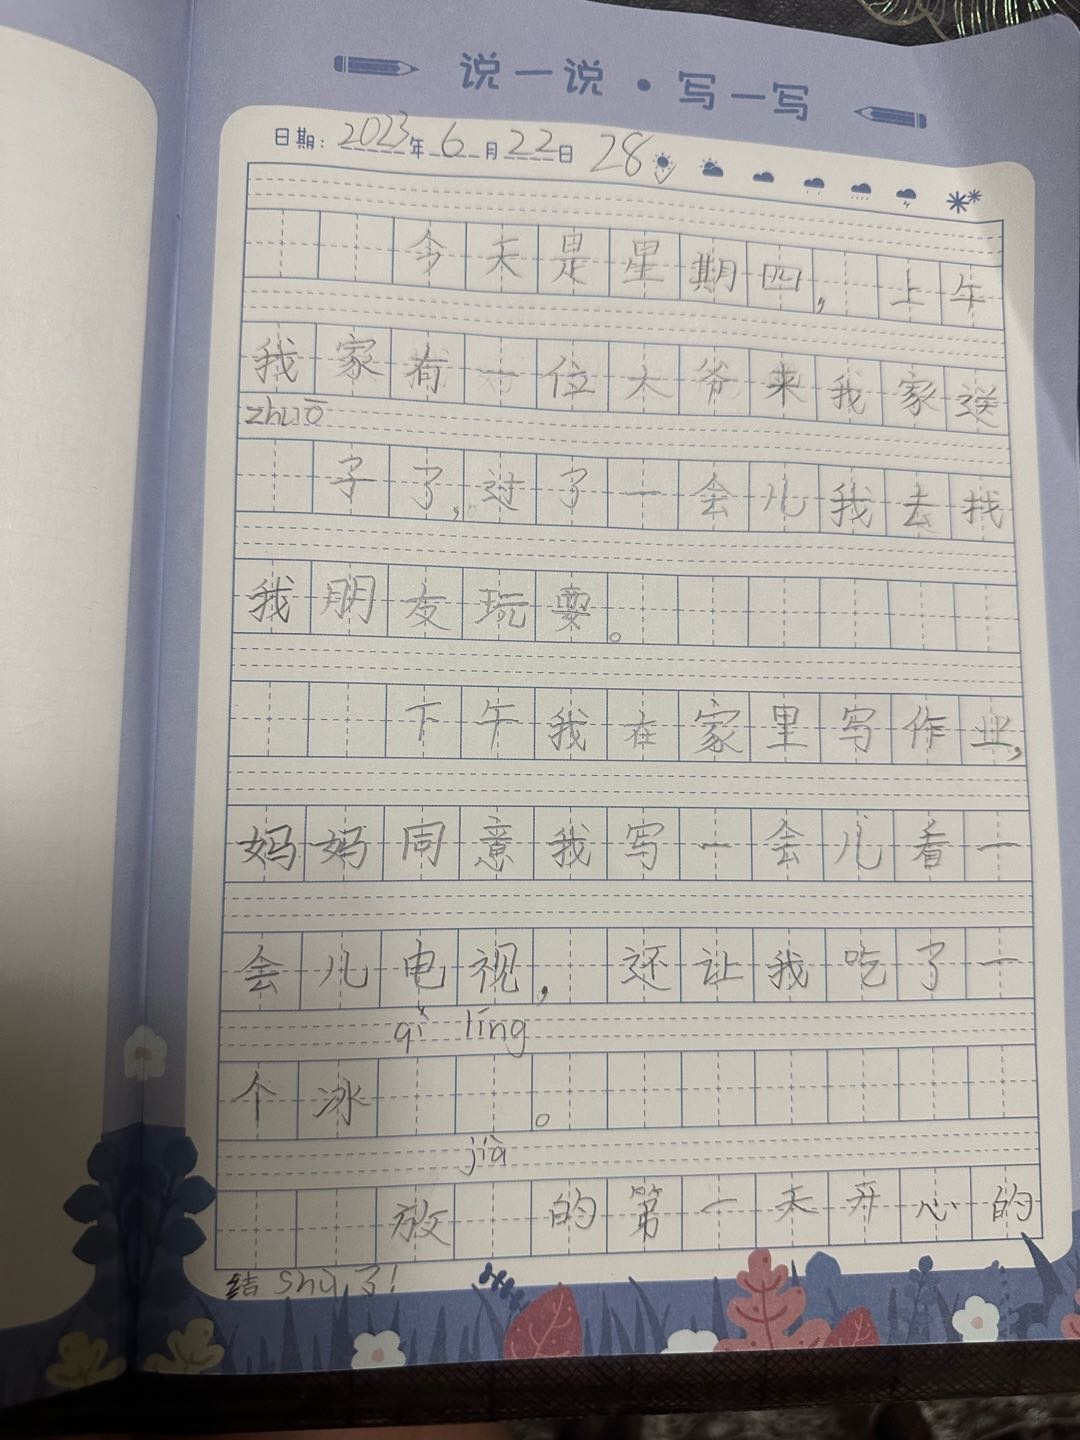 说一说·写一写
日期：2023年6月22日 28
今天是星期四，上午
我家有一位大爷来我家送
zhuō
子了，过了一会儿我去找
我朋友玩耍。
下午我在家里写作业，
妈妈同意我写一会儿看一
会儿电视，还让我吃了一
qǐ líng
个冰。
jià
放的第一天开心的
结shù了！